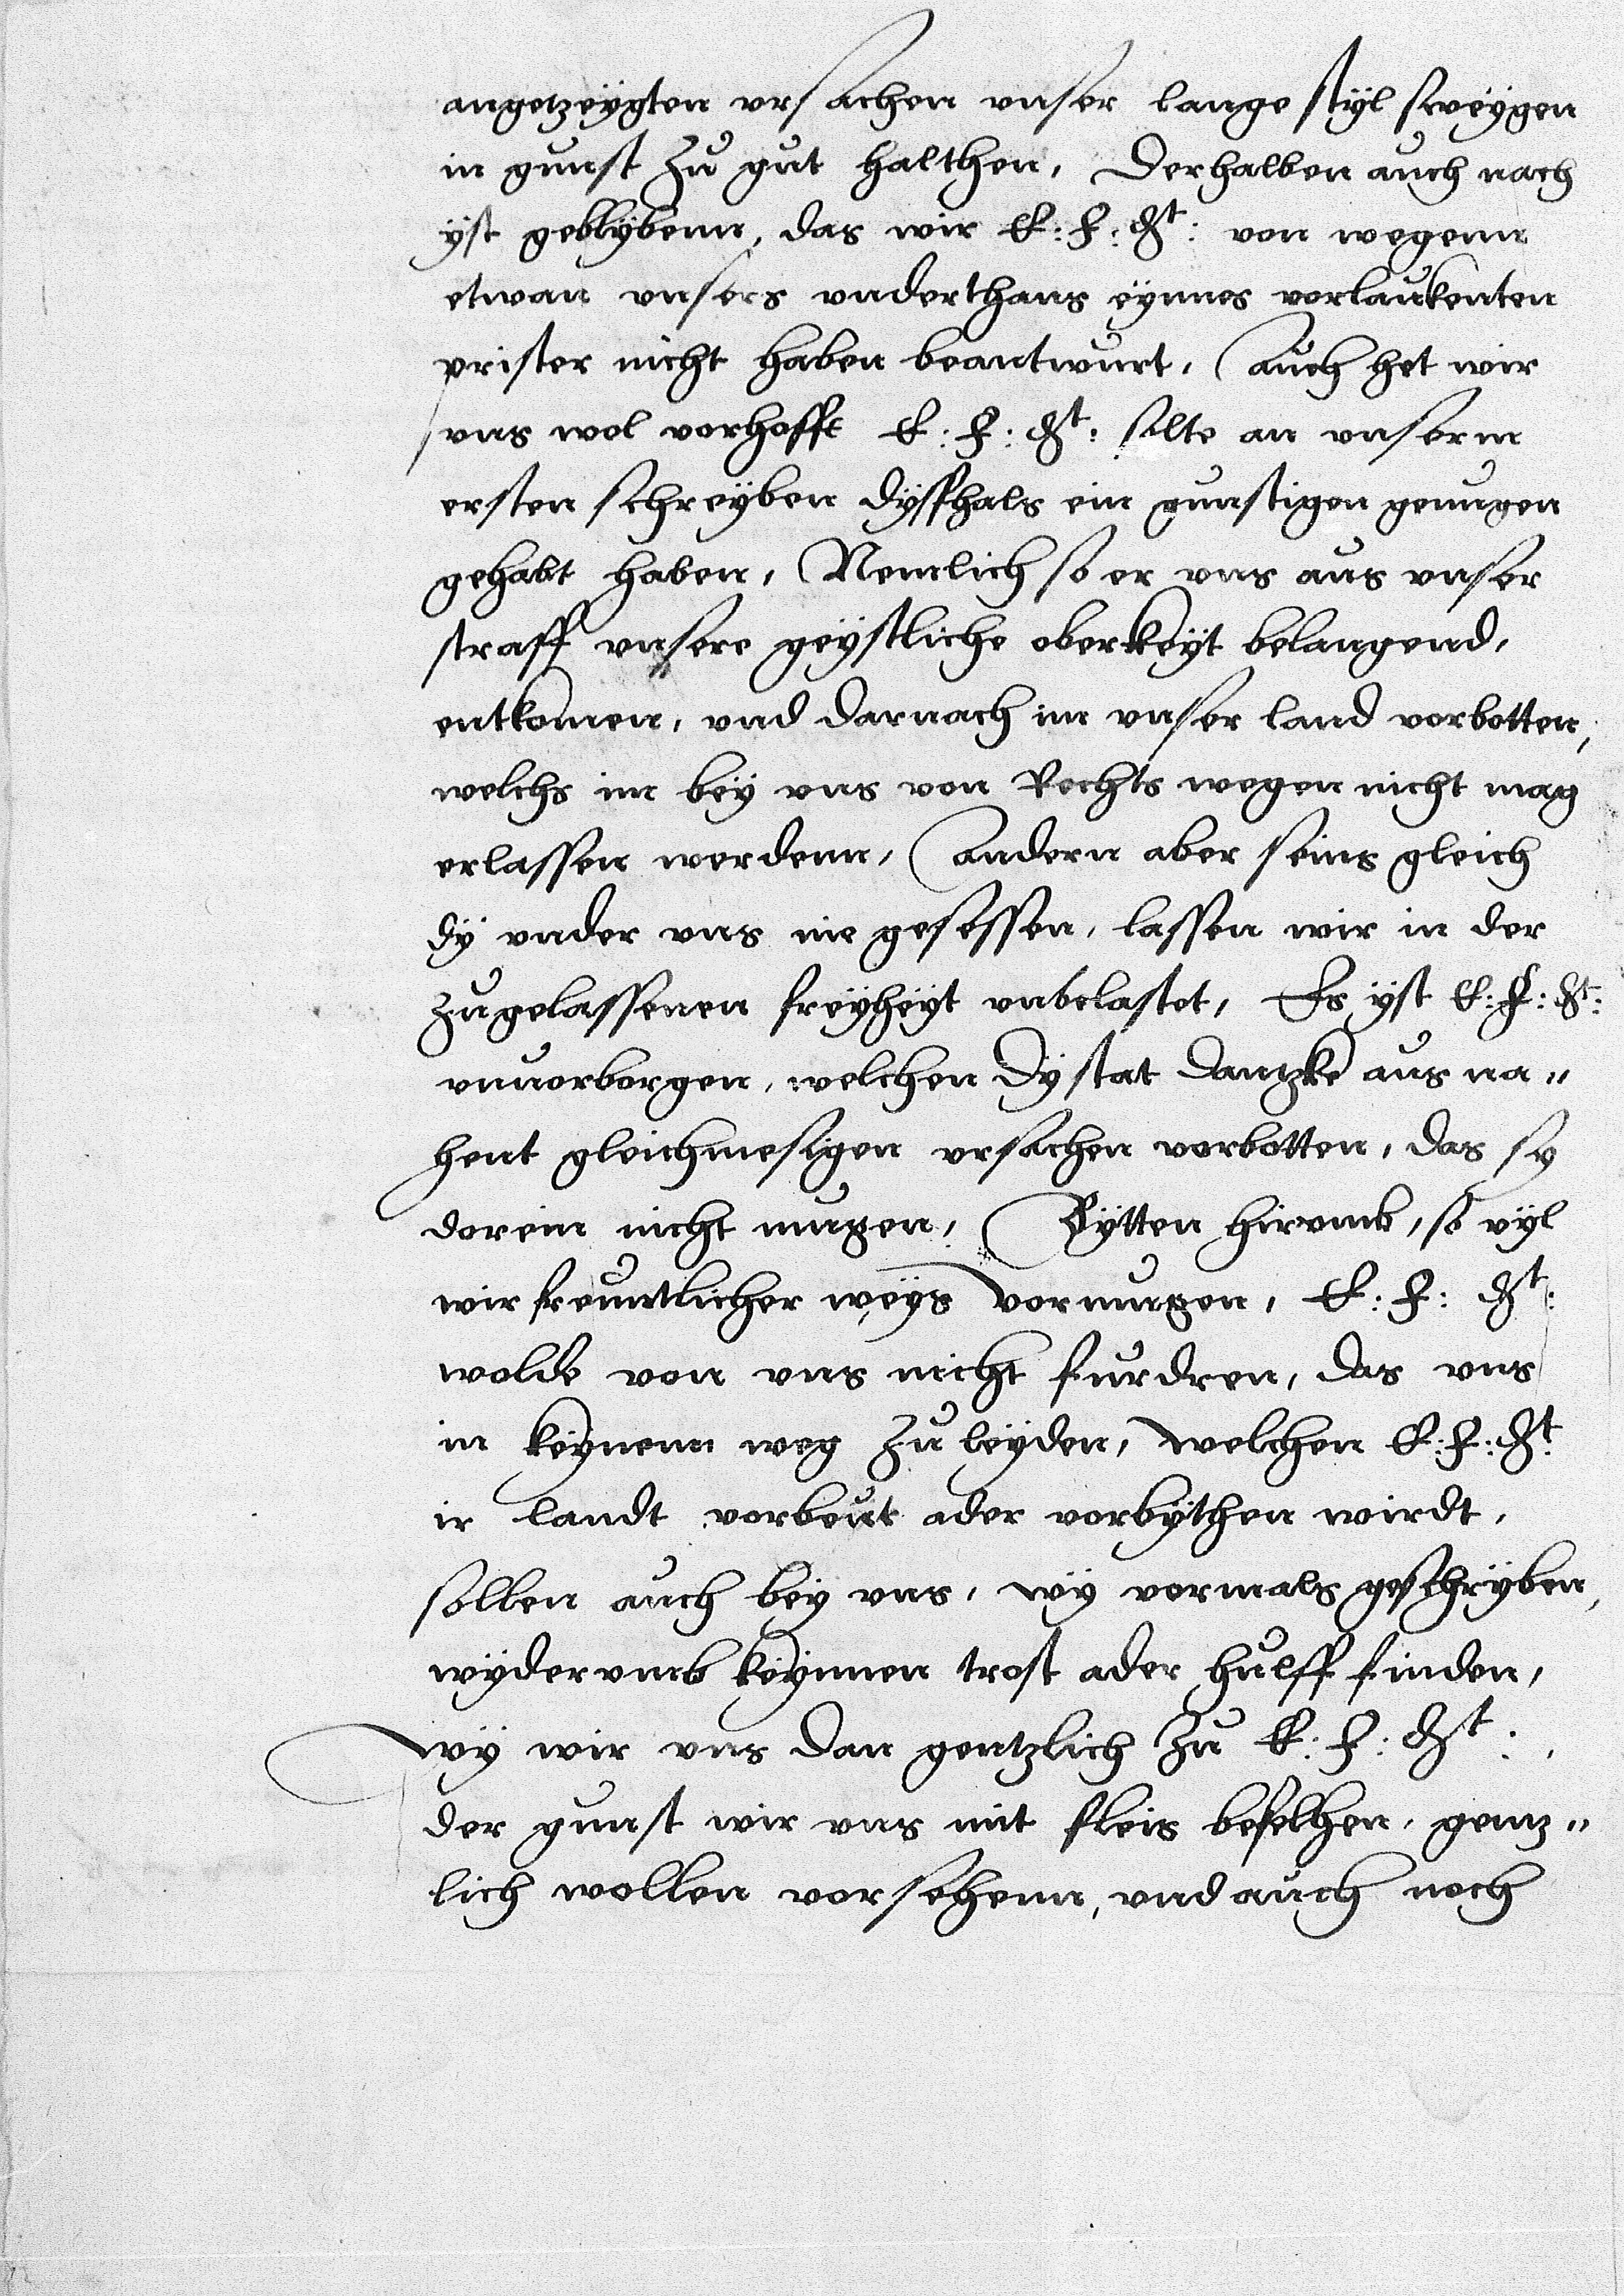 angetzeÿgten vrsachen vnser lange stÿl sweÿgen
in gunst zu gut halthen, Derhalben auch nach
ÿst geblÿbenn, das wir E: F: Dt: von wegenn
etwan vnsers vnderthans eÿnnes vorlaukenten
prister nicht haben beantwurt, Auch het wir
vns wol vorhofft E: F: Dt: solte an vnserm
ersten schreÿben dÿsfhals ein gunstigen genugen
gehabt haben, Nemlich so er vns aus vnser
straff vnsere geÿstliche oberkeÿt belangend,
entkomen, vnd darnach im vnser land vorbotten,
welchs im beÿ vns von Rechts wegen nicht mag
erlassen werdenn, Andern aber seins gleich
dÿ vnder vns nie gesessen, lassen wir in der
zugelassenen freÿheÿt vnbelastet, Es ÿst E: F: Dt:
vnuorborgen, welchen dÿ stat Dantzke aus na„
hent gleichmesigen vrsachen vorbotten, das sy
dorein nicht mugen, Bÿtten hirvmb, so vÿl
wir freuntlicher weÿs vormugen, E: F: Dt:
wolde von vns nicht furdren, das vns
in keÿnem weg zu leÿden, welchen E: F: Dt:
ir landt vorbeut ader vorbÿthen wirdt,
sollen auch beÿ vns, wÿ vormals geschrÿben,
wÿdervmb keÿnnen trost ader hulff finden,
wÿ wir vns dan gentzlich zu E: F: Dt:,
der gunst wir vns mit fleis befelhen, gentz„
lich wollen vorsehenn, vnd auch noch